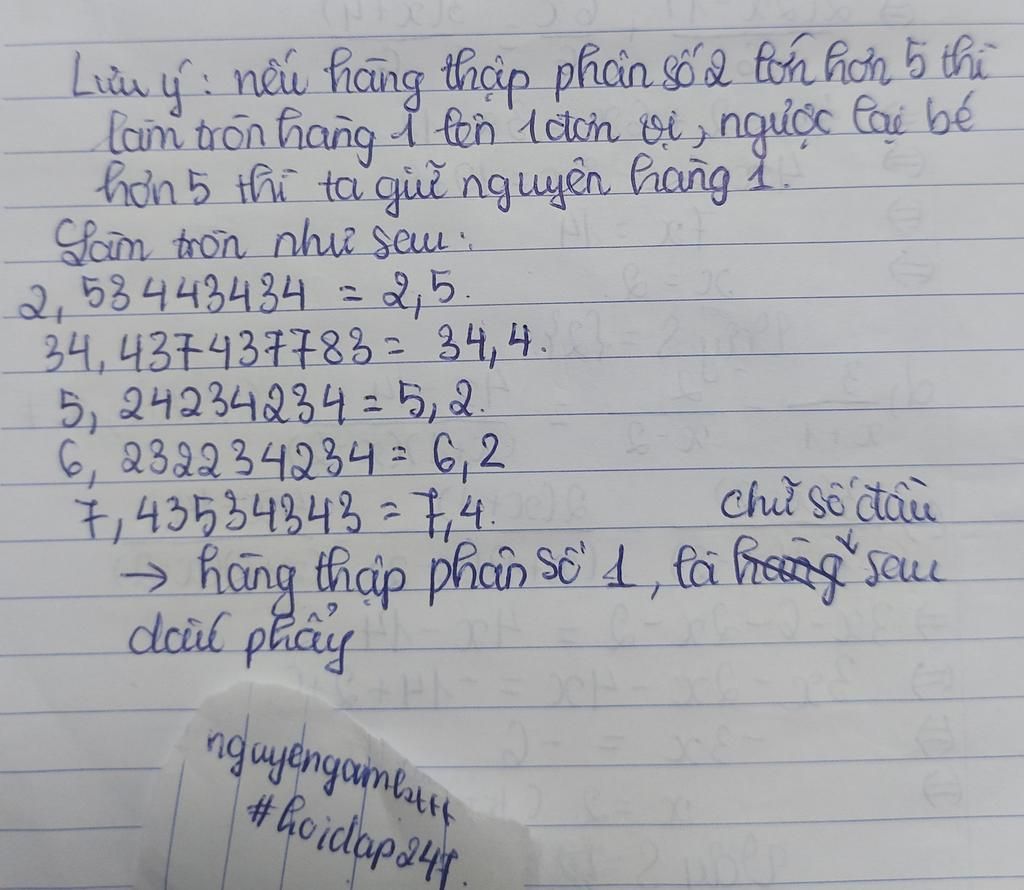 Lưu ý: nếu hàng thập phân số 2 lớn hơn 5 thì
làm tròn hàng 1 lên 1 đơn vị, ngược lại bé
hơn 5 thì ta giữ nguyên hàng 1.
Làm tròn như sau:
2, 53443434 = 2,5.
34, 437437783 = 34,4.
5, 24234234 = 5,2.
6, 232234234 = 6,2
7, 43534343 = 7,4.
chữ số đầu
→ hàng thập phân số 1, là hàng sau
dấu phẩy
#hoidap247